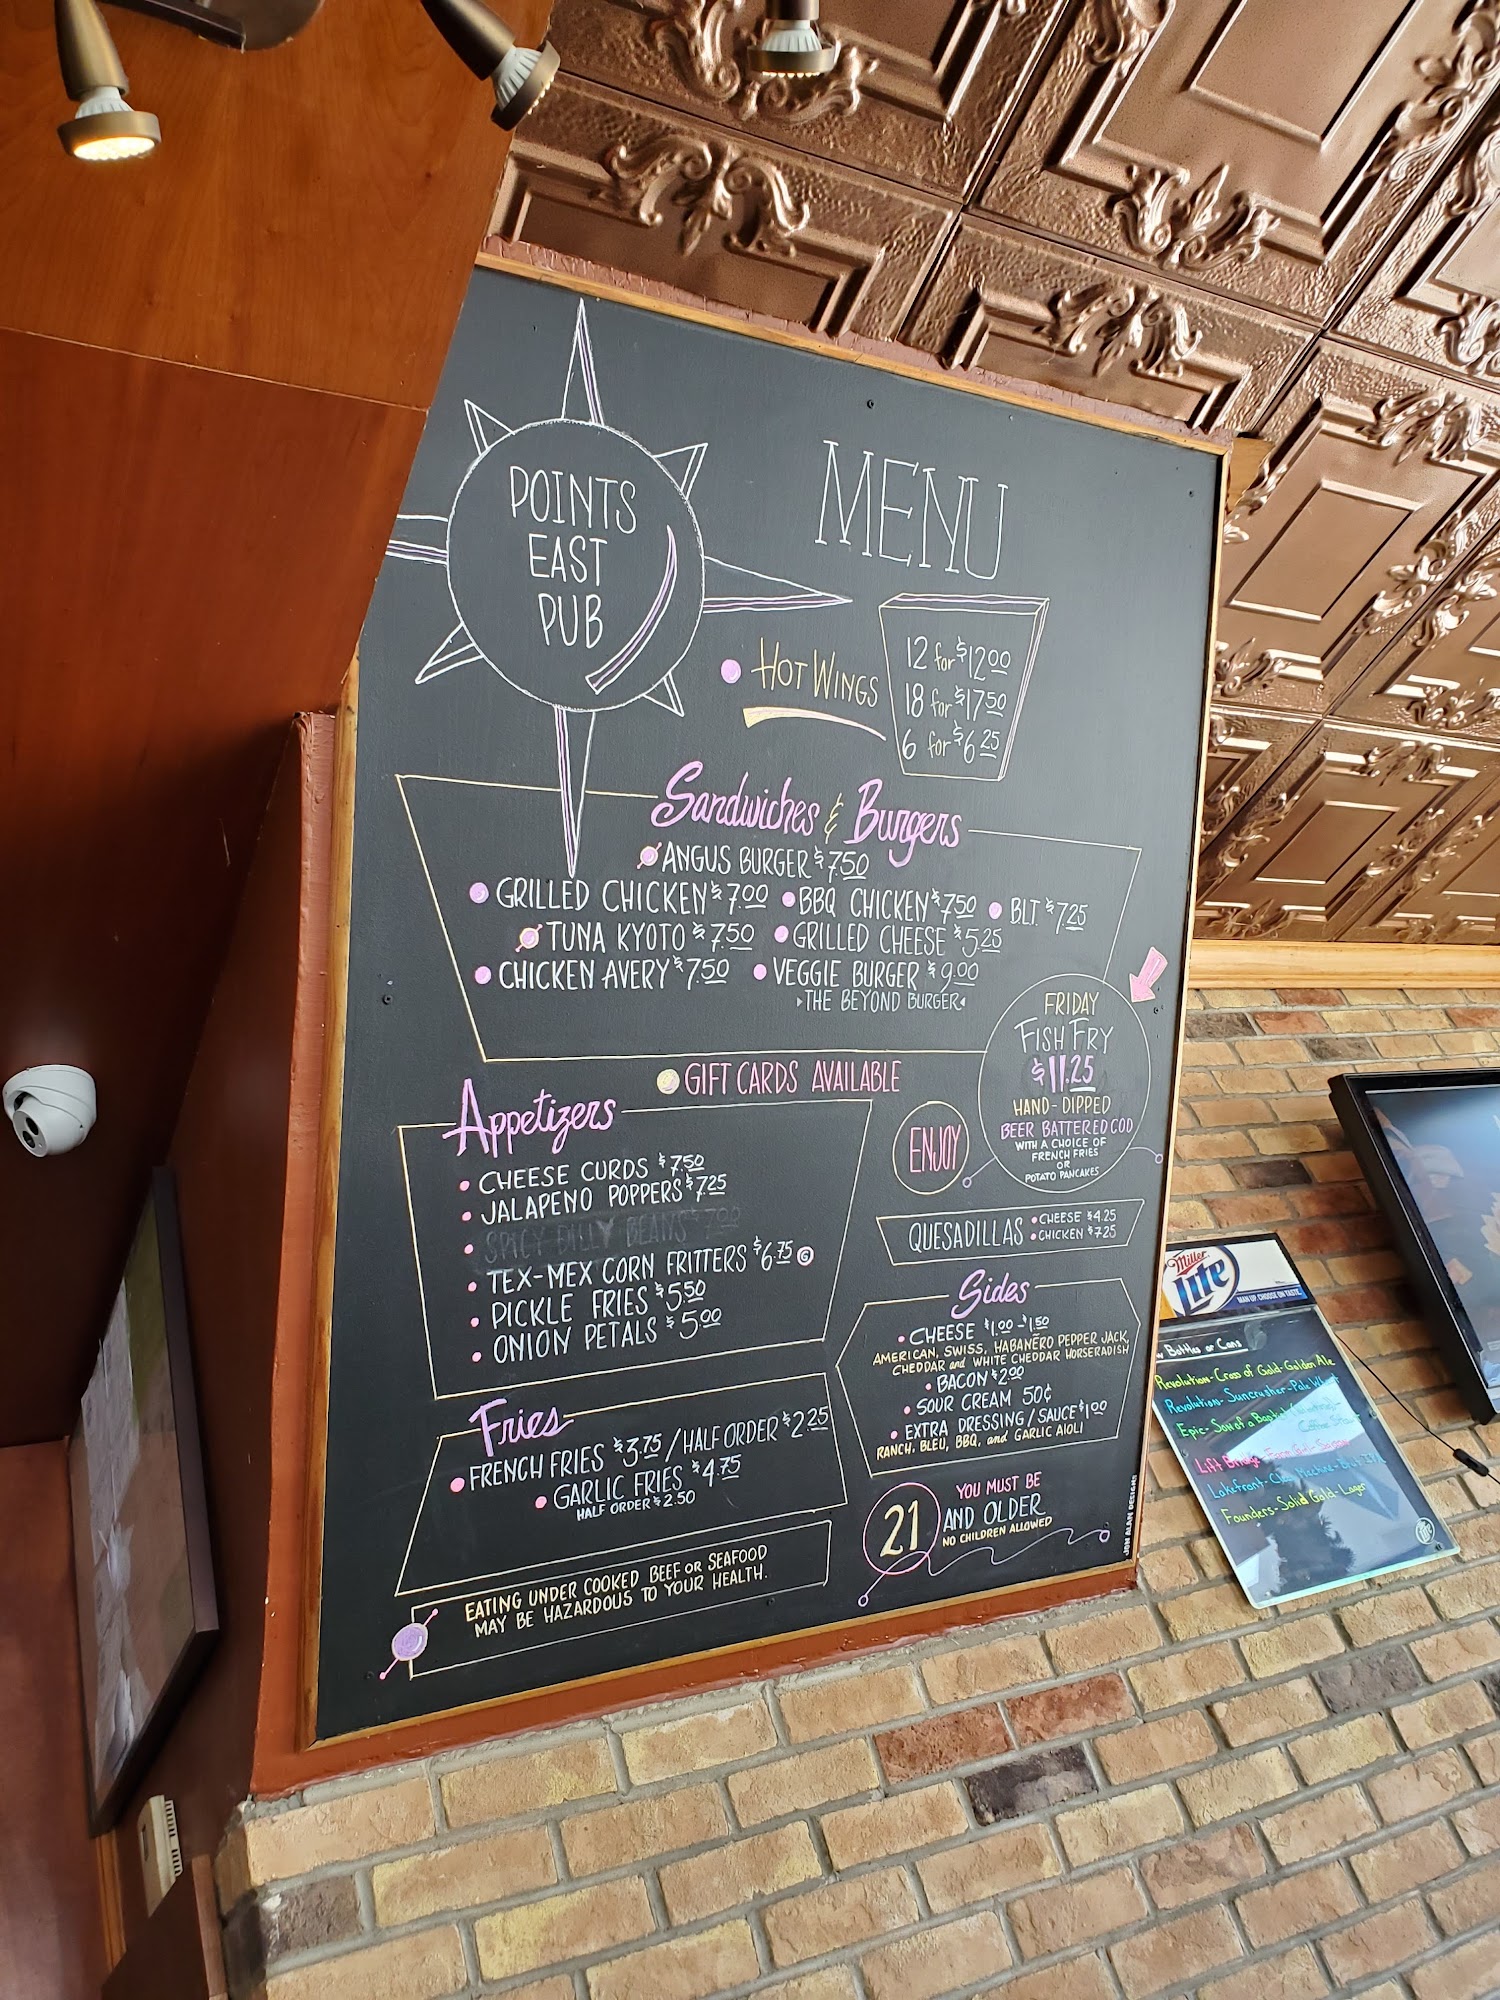 POINTS
EAST
PUB
MENU
HOT WINGS
12 for $12.00
18 for $17.50
6 for $6.25
Sandwiches & Burgers
ANGUS BURGER $7.50
GRILLED CHICKEN $7.00 BBQ CHICKEN $7.50 BLT $7.25
TUNA KYOTO $7.50 GRILLED CHEESE $5.25
CHICKEN AVERY $7.50 VEGGIE BURGER $9.00
THE BEYOND BURGER
FRIDAY
FISH FRY
$11.25
HAND-DIPPED
BEER BATTERED COD
WITH A CHOICE OF
FRENCH FRIES
OR
POTATO PANCAKES
GIFT CARDS AVAILABLE
ENJOY
Appetizers
CHEESE CURDS $7.50
JALAPENO POPPERS $7.25
SPICY DILLY BEANS $7.00
TEX-MEX CORN FRITTERS $6.75 G
PICKLE FRIES $5.50
ONION PETALS $5.00
QUESADILLAS
CHEESE $4.25
CHICKEN $7.25
Sides
CHEESE $1.00-$1.50
AMERICAN, SWISS, HABANERO PEPPER JACK,
CHEDDAR and WHITE CHEDDAR HORSERADISH
BACON $2.00
SOUR CREAM 50¢
EXTRA DRESSING/SAUCE $1.00
RANCH, BLEU, BBQ, and GARLIC AIOLI
Fries
FRENCH FRIES $3.75 / HALF ORDER $2.25
GARLIC FRIES $4.75
HALF ORDER $2.50
EATING UNDER COOKED BEEF OR SEAFOOD
MAY BE HAZARDOUS TO YOUR HEALTH.
21
YOU MUST BE
AND OLDER
NO CHILDREN ALLOWED
JON ALAN DESIGNS
Miller
Lite
MAN UP. CHOOSE ON TASTE.
Bottles or Cans
Revolution-Cross of Gold-Golden Ale
Revolution-Suncrusher-Pale
Epic-Son of a Baptist
Lift Bridge-Farm Girl-Saison
Lakefront-
Founders-Solid Gold-Lager